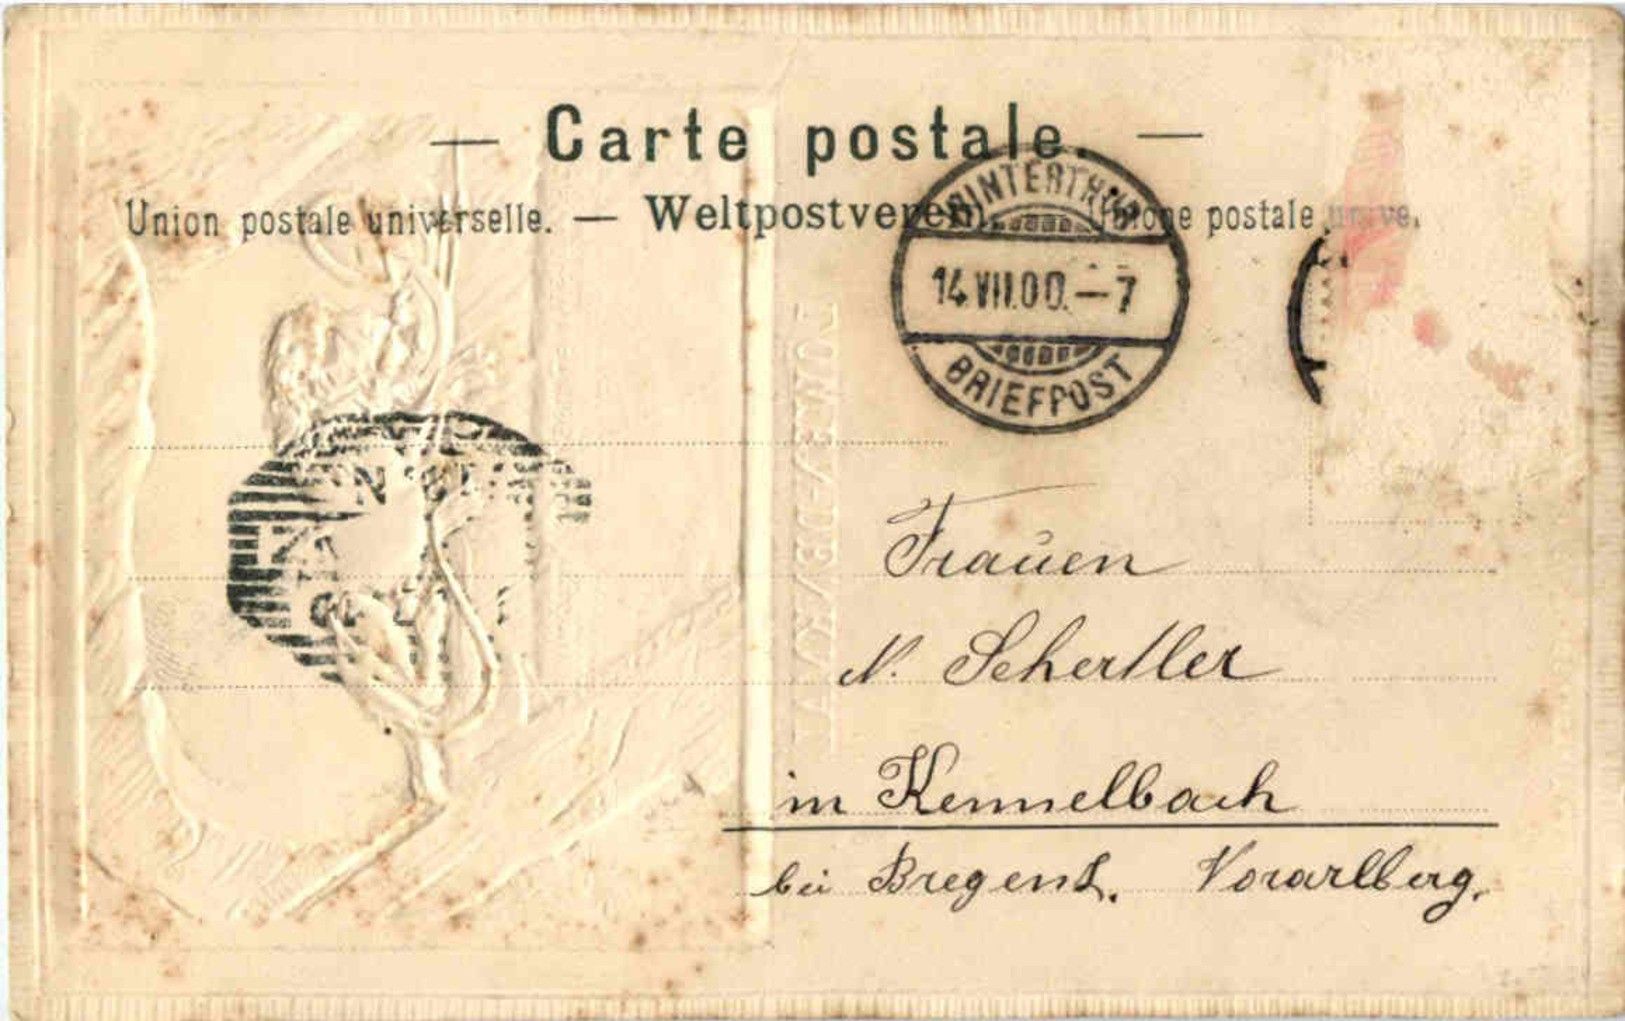 — Carte postale. —
Union postale universelle. — Weltpostverein. postale
WINTERTHUR
14.VII.00.–7
BRIEFPOST
Frauen
N. Schertler
in Kennelbach
bei Bregenz. Vorarlberg.